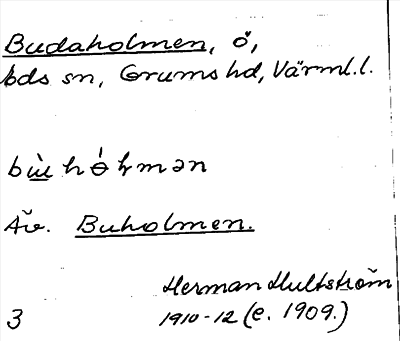 Budaholmen, ö,
bds sn, Grums hd, Värml.l.
Äv. Buholmen.
Herman Hultström
1910-12 (e. 1909.)
3